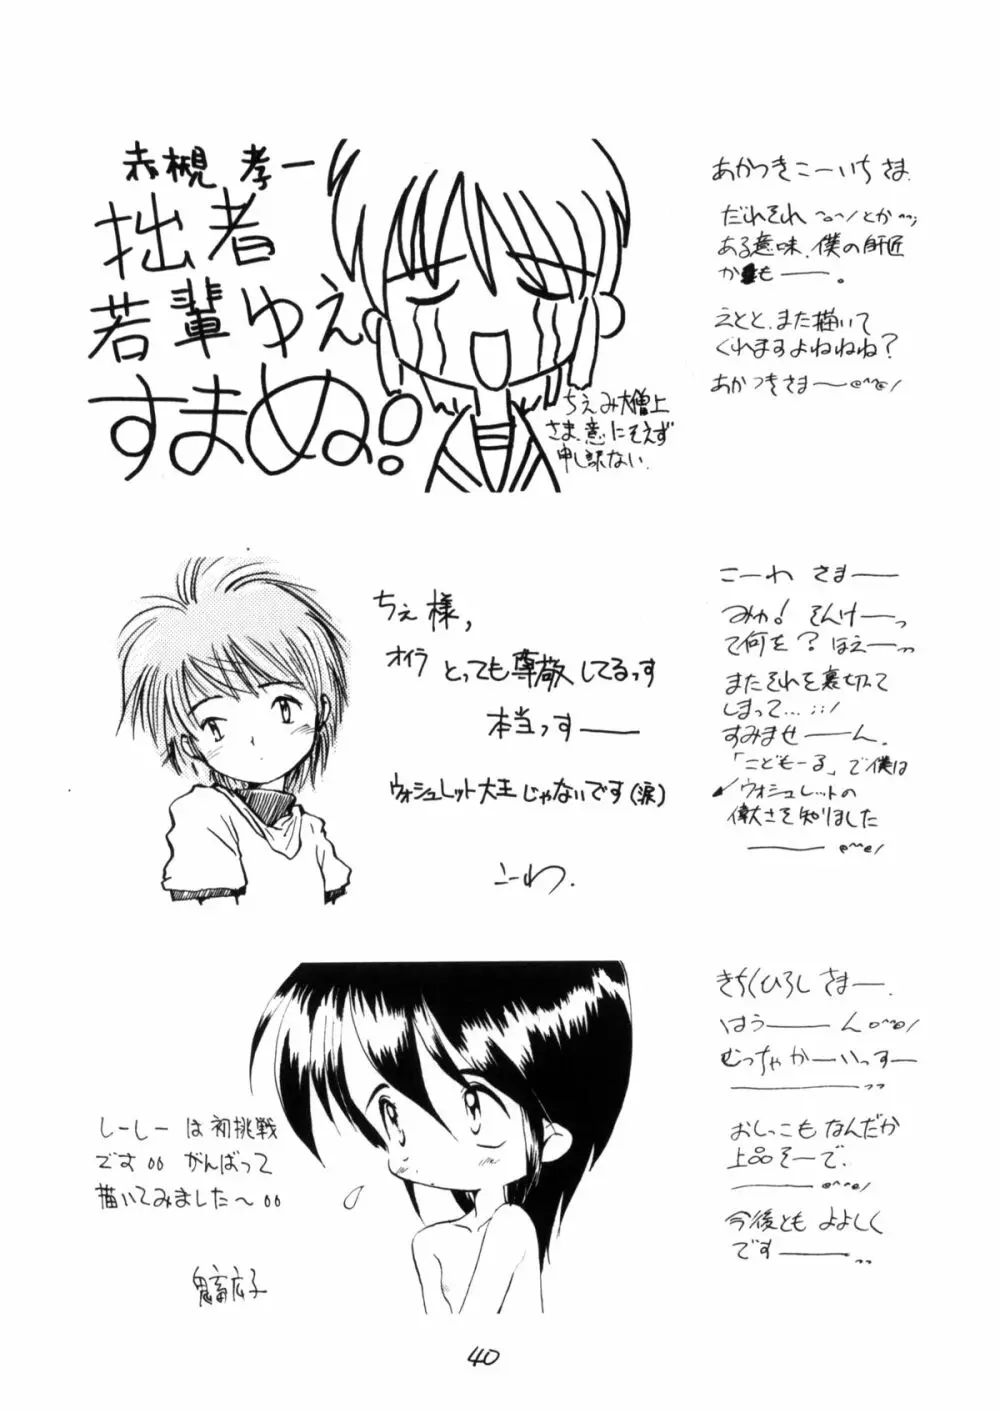 赤槻 孝一
拙者
若輩ゆえ
すまぬ!
ちえみ大僧上
さま、意にそえず
申し訳ない.
あかつきこーいち さま.
だれそれ
とか
ある意味、僕の師匠
かも——。
えとと、また描いて
くれますよねねね?
あかつきさま〜
ちえ様,
オイラ とっても尊敬してるっす
本当っす——
ウォシュレット大王じゃないです(涙)
こーわ.
こーわ さま——
みゅ! そんけーっ
て何を? ほえーっ
またそれを裏切って
しまって...
すみませーん.
「こどもーる」で僕は
ウォシュレットの
偉大さを知りました
——
しーしー は初挑戦
です がんばって
描いてみました〜
鬼畜広子
きちくひろし さまー.
はうー——ん
むっちゃかーいっすー
おしっこもなんだか
上品そーで.
今後とも よよしく
です——
40